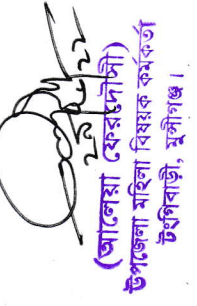 ২৯/৫/২২
(আলেয়া ফেরদৌসী)
উপজেলা মহিলা বিষয়ক কর্মকর্তা
টংগিবাড়ী, মুন্সীগঞ্জ।